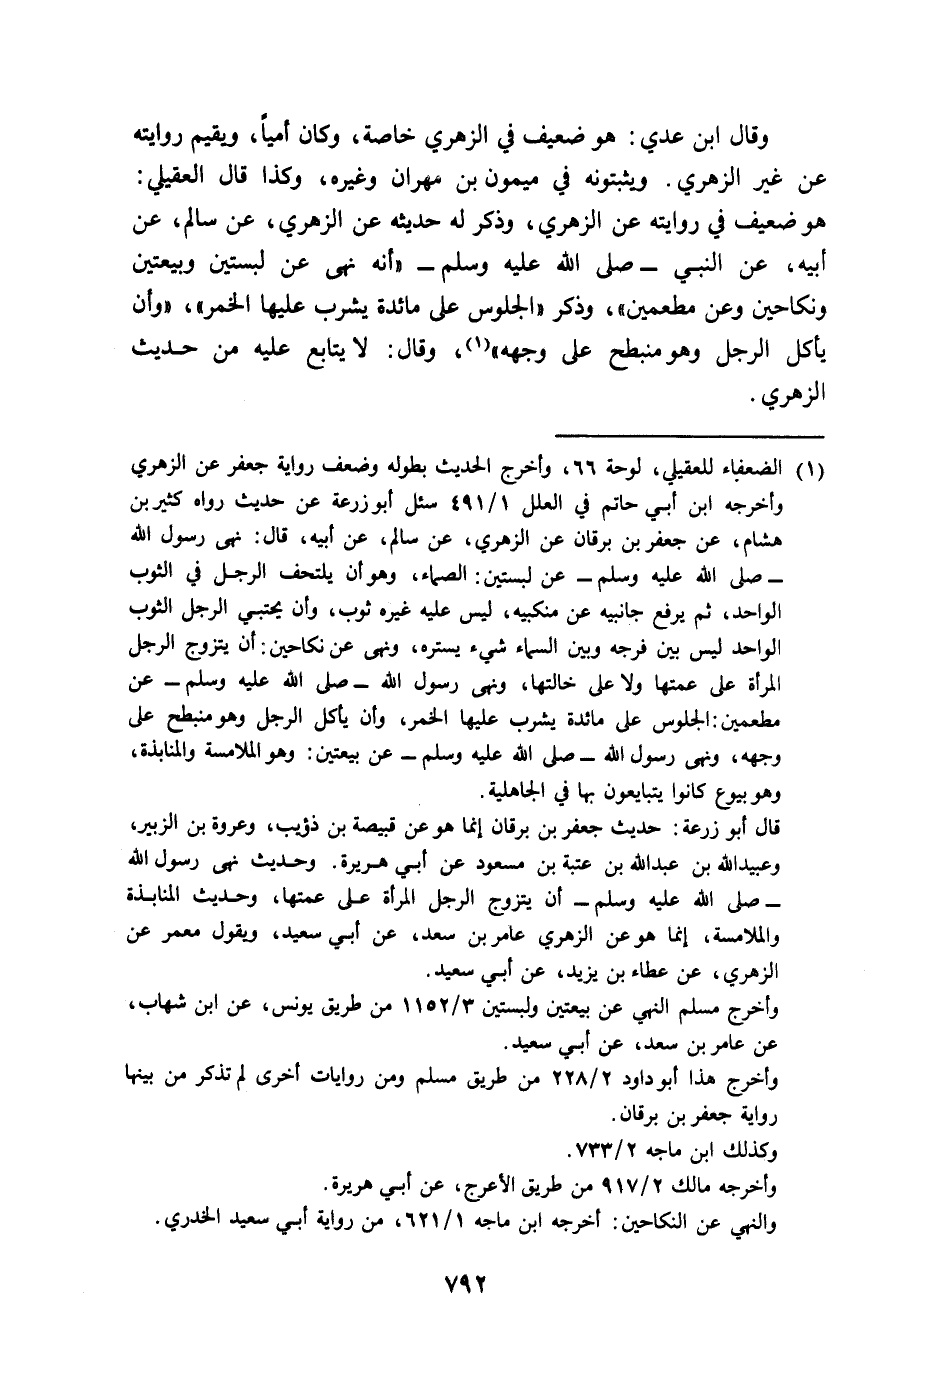 وقال ابن عدي: هو ضعيف في الزهري خاصة، وكان أمياً، ويقيم روايته
عن غير الزهري. ويثبتونه في ميمون بن مهران وغيره، وكذا قال العقيلي:
هو ضعيف في روايته عن الزهري، وذكر له حديثه عن الزهري، عن سالم، عن
أبيه، عن النبي ــ صلى الله عليه وسلم ــ «أنه نهى عن لبستين وبيعتين
ونكاحين وعن مطعمين»، وذكر «الجلوس على مائدة يشرب عليها الخمر»، «وأن
يأكل الرجل وهو منبطح على وجهه»(١)، وقال: لا يتابع عليه من حديث
الزهري.
(١) الضعفاء للعقيلي، لوحة ٦٦، وأخرج الحديث بطوله وضعف رواية جعفر عن الزهري
وأخرجه ابن أبي حاتم في العلل ٤٩١/١ سئل أبو زرعة عن حديث رواه كثير بن
هشام، عن جعفر بن برقان عن الزهري، عن سالم، عن أبيه، قال: نهى رسول الله
ــ صلى الله عليه وسلم ــ عن لبستين: الصماء، وهو أن يلتحف الرجل في الثوب
الواحد، ثم يرفع جانبيه عن منكبيه، ليس عليه غيره ثوب، وأن يحتبي الرجل الثوب
الواحد ليس بين فرجه وبين السماء شيء يستره، ونهى عن نكاحين: أن يتزوج الرجل
المرأة على عمتها ولا على خالتها، ونهى رسول الله ــ صلى الله عليه وسلم ــ عن
مطعمين: الجلوس على مائدة يشرب عليها الخمر، وأن يأكل الرجل وهو منبطح على
وجهه، ونهى رسول الله ــ صلى الله عليه وسلم ــ عن بيعتين: وهو الملامسة والمنابذة،
وهو بيوع كانوا يتبايعون بها في الجاهلية.
قال أبو زرعة: حديث جعفر بن برقان إنما هو عن قبيصة بن ذؤيب، وعروة بن الزبير،
وعبيدالله بن عبدالله بن عتبة بن مسعود عن أبي هريرة. وحديث نهى رسول الله
ــ صلى الله عليه وسلم ــ أن يتزوج الرجل المرأة على عمتها، وحديث المنابذة
والملامسة، إنما هو عن الزهري عامر بن سعد، عن أبي سعيد، ويقول معمر عن
الزهري، عن عطاء بن يزيد، عن أبي سعيد.
وأخرج مسلم النهي عن بيعتين ولبستين ١١٥٢/٣ من طريق يونس، عن ابن شهاب،
عن عامر بن سعد، عن أبي سعيد.
وأخرج هذا أبو داود ٢٢٨/٢ من طريق مسلم ومن روايات أخرى لم تذكر من بينها
رواية جعفر بن برقان.
وكذلك ابن ماجه ٧٣٣/٢.
وأخرجه مالك ٩١٧/٢ من طريق الأعرج، عن أبي هريرة.
والنهي عن النكاحين: أخرجه ابن ماجه ٦٢١/١، من رواية أبي سعيد الخدري.
٧٩٢